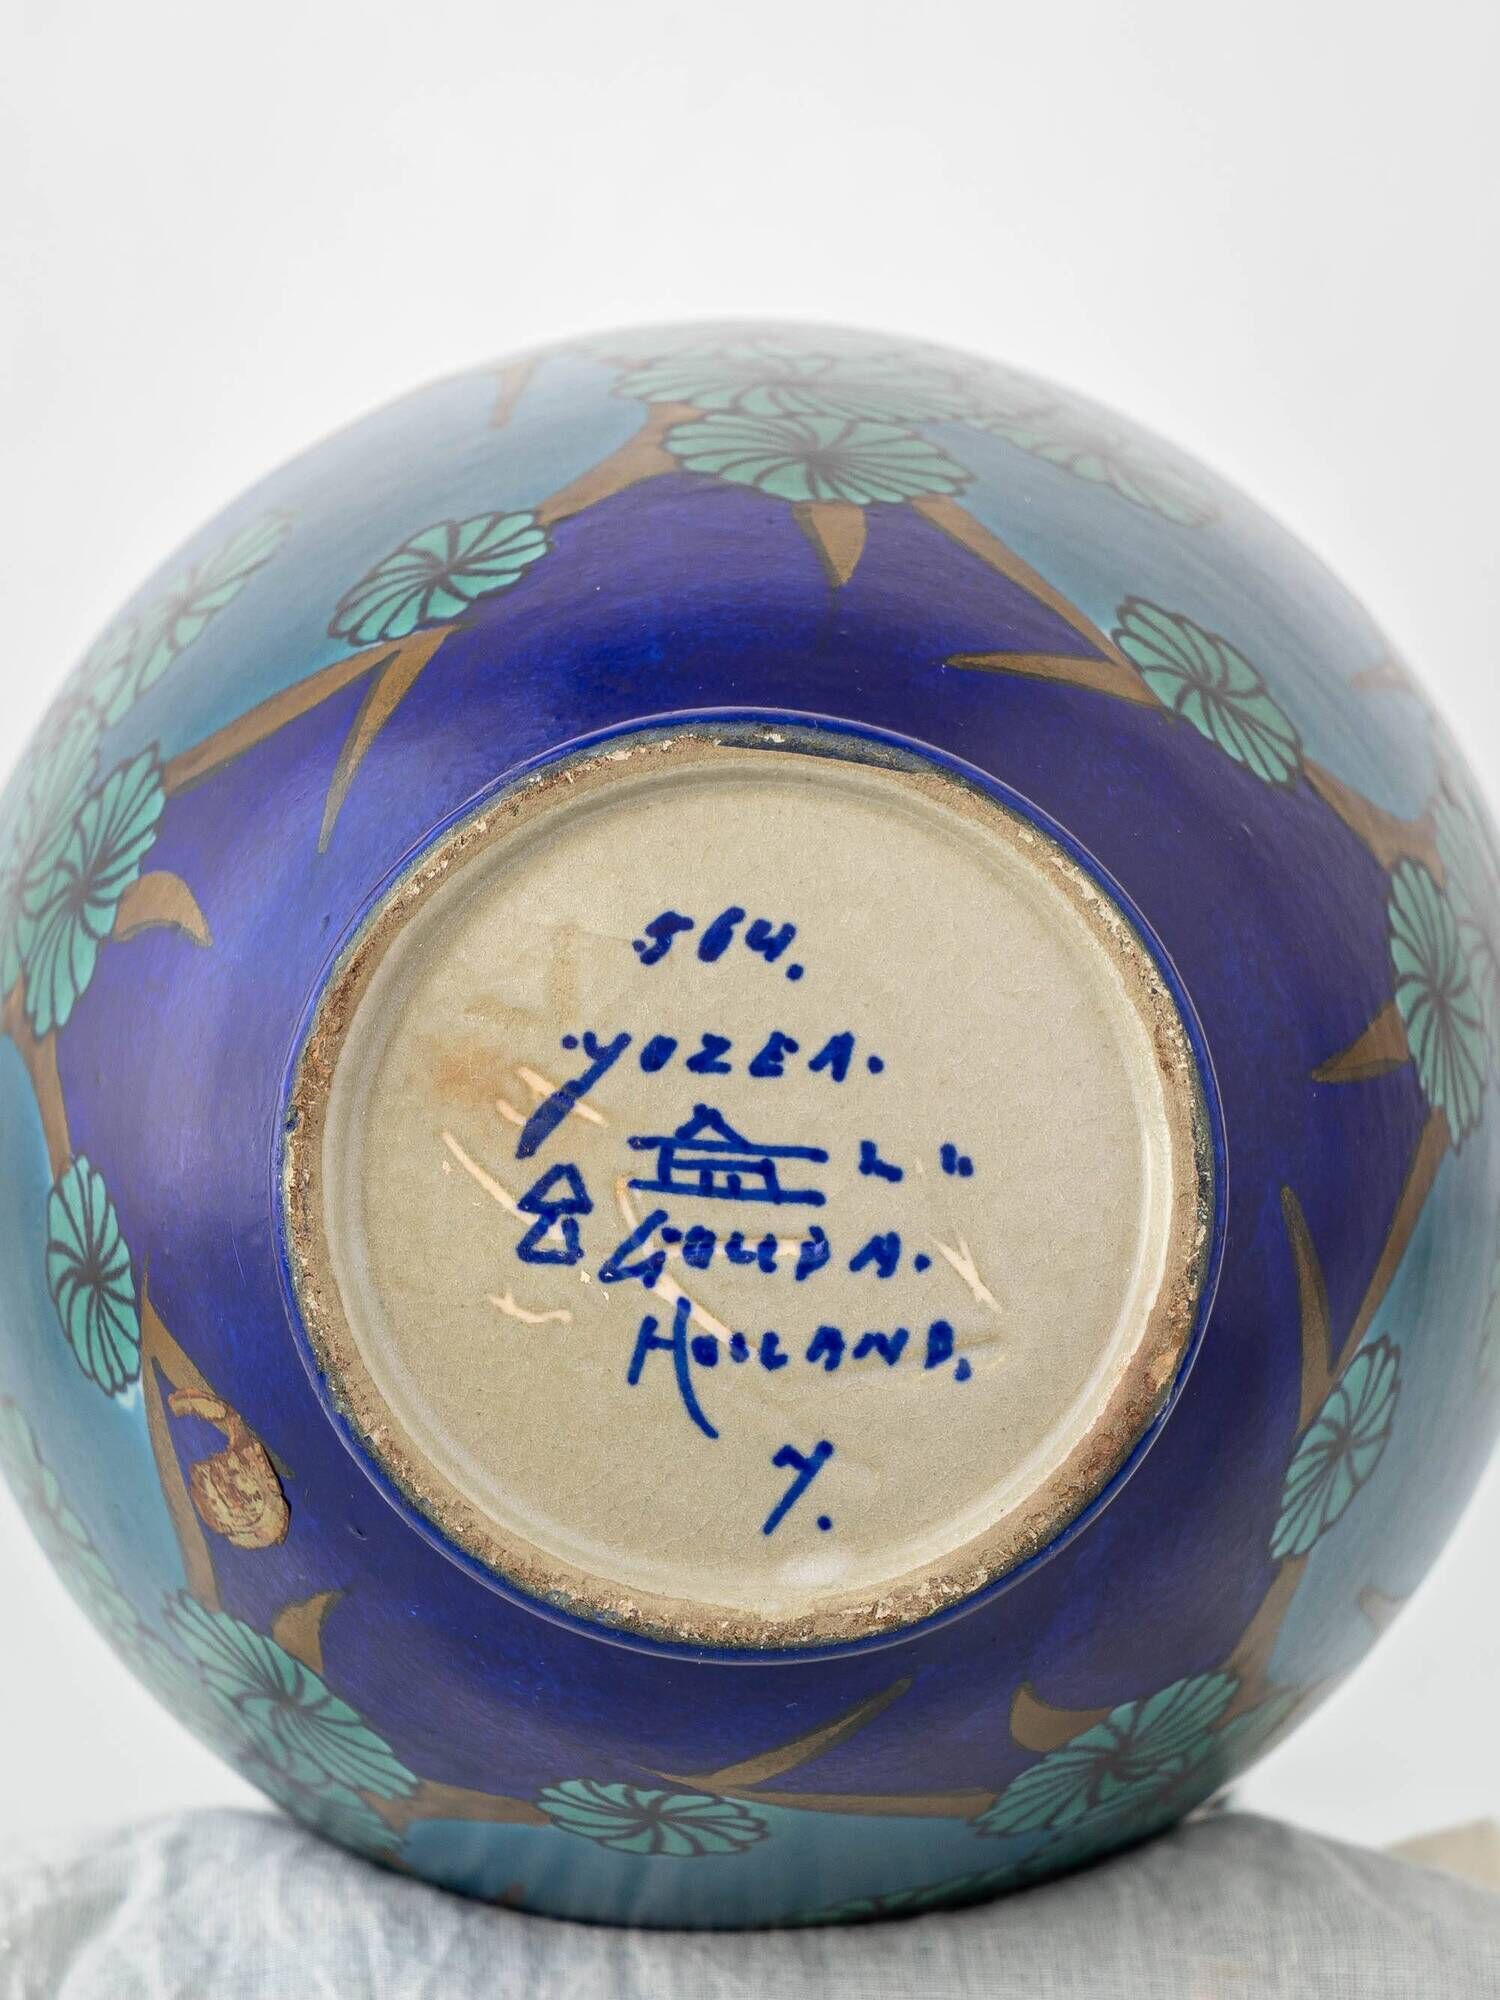 564.
YOZEA.
GOUDA.
HOLLAND.
Y.